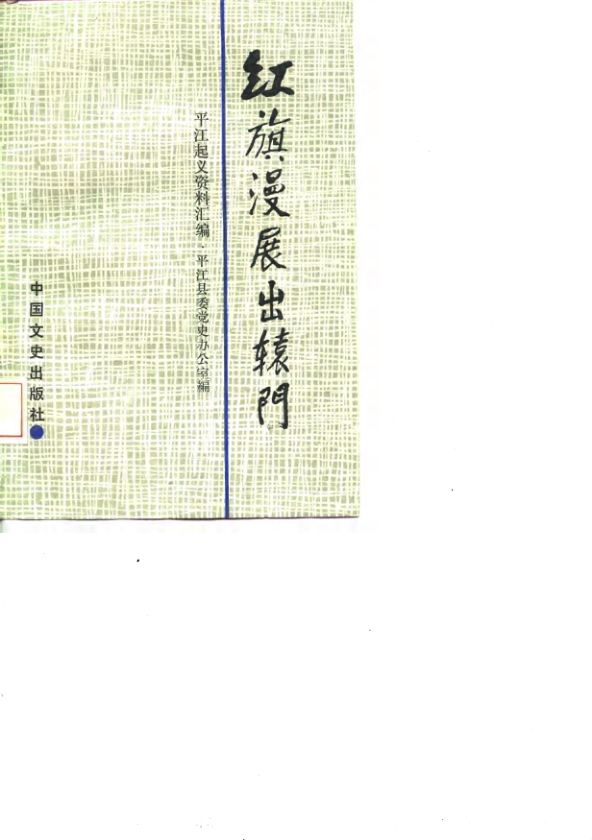 红旗漫展出辕門
平江起义资料汇编·平江县委党史办公室编
中国文史出版社